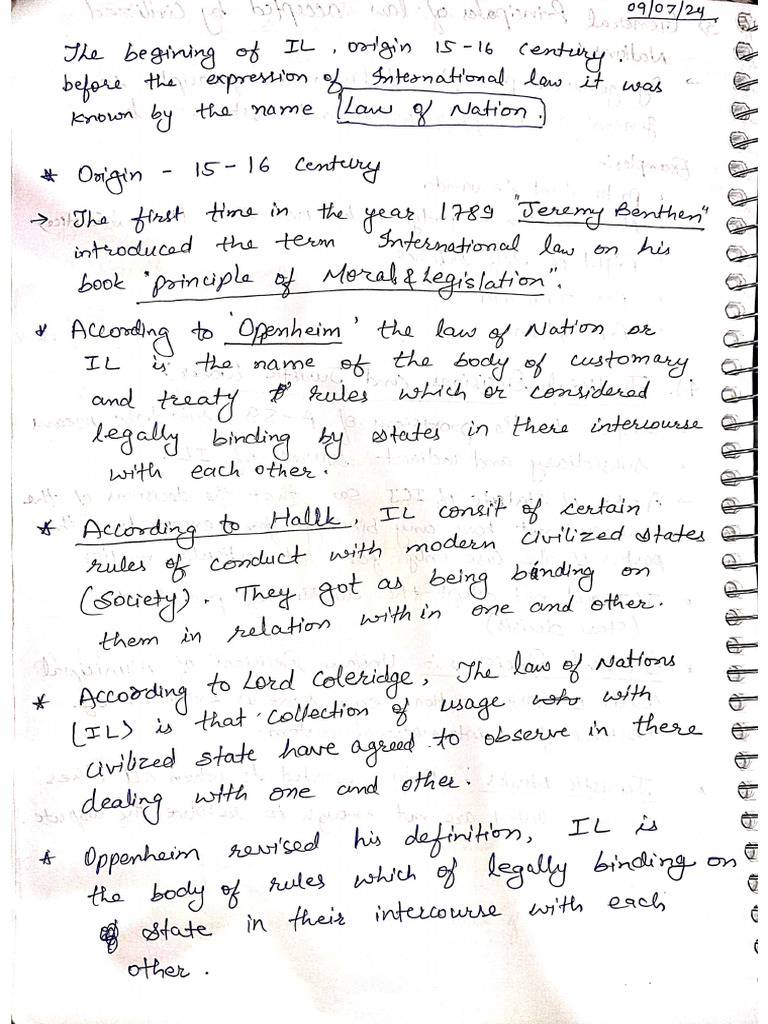 09/07/24
The begining of IL, origin 15-16 century.
before the expression of International law it was
known by the name Law of Nation.
* Origin - 15-16 century
→ The first time in the year 1789 "Jeremy Benthen"
introduced the term International law on his
book "principle of Moral & Legislation".
* According to 'Openheim' the law of Nation or
IL is the name of the body of customary
and treaty rules which or considered
legally binding by states in there intercourse
with each other.
* According to Hallk, IL consit of certain
rules of conduct with modern civilized states
(society). They got as being binding on
them in relation with in one and other.
* According to Lord Coleridge, The law of Nations
(IL) is that collection of usage with
civilized state have agreed to observe in there
dealing with one and other.
* Oppenheim revised his definition, IL is
the body of rules which of legally binding on
state in their intercourse with each
other.